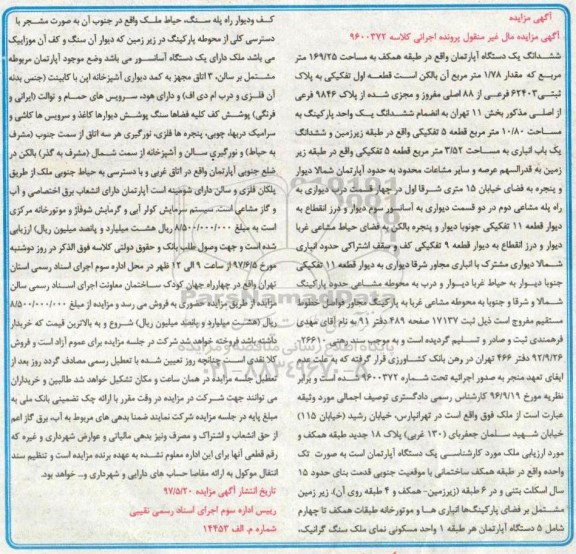 آگهی مزایده
آگهی مزایده مال غیر منقول پرونده اجرائی کلاسه ۹۶۰۰۳۷۲
ششدانگ یک دستگاه آپارتمان واقع در طبقه همکف به مساحت ۱۶۹/۲۵ متر
مربع که مقدار ۱/۷۸ متر مربع آن بالکن است قطعه اول تفکیکی به پلاک
ثبتی ۶۲۴۰۳ فرعی از ۸۸ اصلی مفروز و مجزی شده از پلاک ۹۸۴۶ فرعی
از اصلی مذکور بخش ۱۱ تهران به انضمام ششدانگ یک واحد پارکینگ به
مساحت ۱۰/۸۰ متر مربع قطعه ۵ تفکیکی واقع در طبقه زیرزمین و ششدانگ
یک باب انباری به مساحت ۳/۵۲ متر مربع قطعه ۵ تفکیکی واقع در طبقه زیر
زمین به قدرالسهم عرصه و سایر مشاعات محدود به حدود آپارتمان شمالا دیوار
و پنجره به فضای خیابان ۱۵ متری شرقا اول در چهار قسمت درب دیواری به
راه پله مشاعی دوم در دو قسمت دیواری به آسانسور سوم دیوار و درز انقطاع به
دیوار قطعه ۱۱ تفکیکی جنوبا دیوار و پنجره بالکن به فضای حیاط مشاعی غربا
دیوار و درز انقطاع به دیوار قطعه ۹ تفکیکی کف و سقف اشتراکی حدود انباری
شمالا دیواری مشترک با انباری مجاور شرقا دیواری به دیوار قطعه ۱۱ تفکیکی
جنوبا دیوار به حیاط غربا دیوار و درب به محوطه مشاعی حدود پارکینگ
شمالا و شرقا و جنوبا به محوطه مشاعی غربا به پارکینگ مجاور فواصل خطوط
مستقیم مفروج است ذیل ثبت ۱۷۱۳۷ صفحه ۴۸۹ دفتر ۹۱ به نام آقای مهدی
فرهمندی ثبت و صادر و تسلیم گردیده است و به موجب سند رهنی ۲۶۶۱۰-
۹۲/۹/۲۶ دفتر ۴۶۶ تهران در رهن بانک کشاورزی قرار گرفته که به علت عدم
ایفای تعهد منجر به صدور اجرائیه تحت شماره ۹۶۰۰۳۷۲ شده است و برابر
نظریه مورخ ۹۶/۹/۱۹ کارشناس رسمی دادگستری توصیف اجمالی مورد وثیقه
عبارت است از ملک فوق واقع است در تهرانپارس، خیابان رشید (خیابان ۱۱۵)
خیابان شهید سلمان جعفربای (۱۳۰ غربی) پلاک ۱۸ جدید طبقه همکف و
مورد ارزیابی ملک مورد کارشناسی یک دستگاه آپارتمان است به صورت تک
واحده واقع در طبقه همکف ساختمانی با موقعیت جنوبی قدمت بنای حدود ۱۵
سال اسکلت بتنی و در ۶ طبقه (زیرزمین- همکف و ۴ طبقه روی آن). زیر زمین
مشتمل بر فضای پارکینگ‌ها انباری ها و موتورخانه طبقات همکف تا چهارم
شامل ۵ دستگاه آپارتمان هر طبقه ۱ واحد مسکونی نمای ملک سنگ گرانیک،
کف ودیوار راه پله سنگ، حیاط ملک واقع در جنوب آن به صورت مشجر با
دسترسی کلی از محوطه پارکینگ در زیر زمین که دیوار آن سنگ و کف آن موزاییک
می باشد ملک دارای یک دستگاه آسانسور می باشد وضع موجود آپارتمان مربوطه
مشتمل بر سالن، ۳ اتاق مجهز به کمد دیواری آشپزخانه اپن با کابینت (جنس بدنه
آن فلزی و درب ام دی اف) و دارای هود، سرویس های حمام و توالت (ایرانی و
فرنگی) پوشش کف کلیه فضاها سنگ پوشش دیوارها کاغذ و سرویس ها کاشی و
سرامیک دربها، چوبی، پنجره ها فلزی، نورگیری هر سه اتاق از سمت جنوب (مشرف
به حیاط) و نورگیری سالن و آشپزخانه از سمت شمال (مشرف به گذر) بالکن در
ضلع جنوبی آپارتمان واقع در اتاق غربی و با دسترسی به حیاط جنوبی ملک از طریق
پلکان فلزی و سالن دارای شومینه است آپارتمان دارای انشعاب برق اختصاصی و آب
و گاز مشاعی است. سیستم سرمایش کولر آبی و گرمایش شوفاژ و موتورخانه مرکزی
است به مبلغ ۸/۵۰۰/۰۰۰/۰۰۰ ریال هشت میلیارد و پانصد میلیون ریال) ارزیابی
شده است و جهت وصول طلب بانک و حقوق دولتی کلاسه فوق الذکر در روز دوشنبه
مورخ ۹۷/۶/۵ از ساعت ۹ الی ۱۲ ظهر در محل اداره سوم اجرای اسناد رسمی استان
تهران واقع در چهارراه جهان کودک ساختمان معاونت اجرای اسناد رسمی سالن
مزایده از طریق مزایده حضوری به فروش می رسد و مزایده از مبلغ ۸/۵۰۰/۰۰۰/۰۰۰
ریال (هشت میلیارد و پانصد میلیون ریال) شروع و به بالاترین قیمت که خریدار
داشته باشد فروخته خواهد شد شرکت در جلسه مزایده برای عموم آزاد است و فروش
کلا نقدی است چنانچه روز تعیین شده با تعطیل رسمی مصادف گردد روز بعد از
تعطیل جلسه مزایده در همان ساعت و مکان تشکیل خواهد شد طالبین و خریداران
می توانند جهت شرکت در مزایده در وقت مقرر با ارائه چک تضمینی بانک ملی به
مبلغ پایه در جلسه مزایده شرکت نمایند ضمنا بدهی های مربوط به آب، برق گاز اعم
از حق انشعاب و اشتراک و مصرف ونیز بدهی مالیاتی و عوارض شهرداری و غیره که
رقم قطعی آنها برای این اداره معلوم نشده به عهده برنده مزایده است و تنظیم سند
انتقال موکول به ارائه مفاصا حساب های دارایی و شهرداری و... خواهد بود.
تاریخ انتشار آگهی مزایده ۹۷/۵/۲۰
رییس اداره سوم اجرای اسناد رسمی نقیبی
شماره م. الف ۱۴۴۵۳